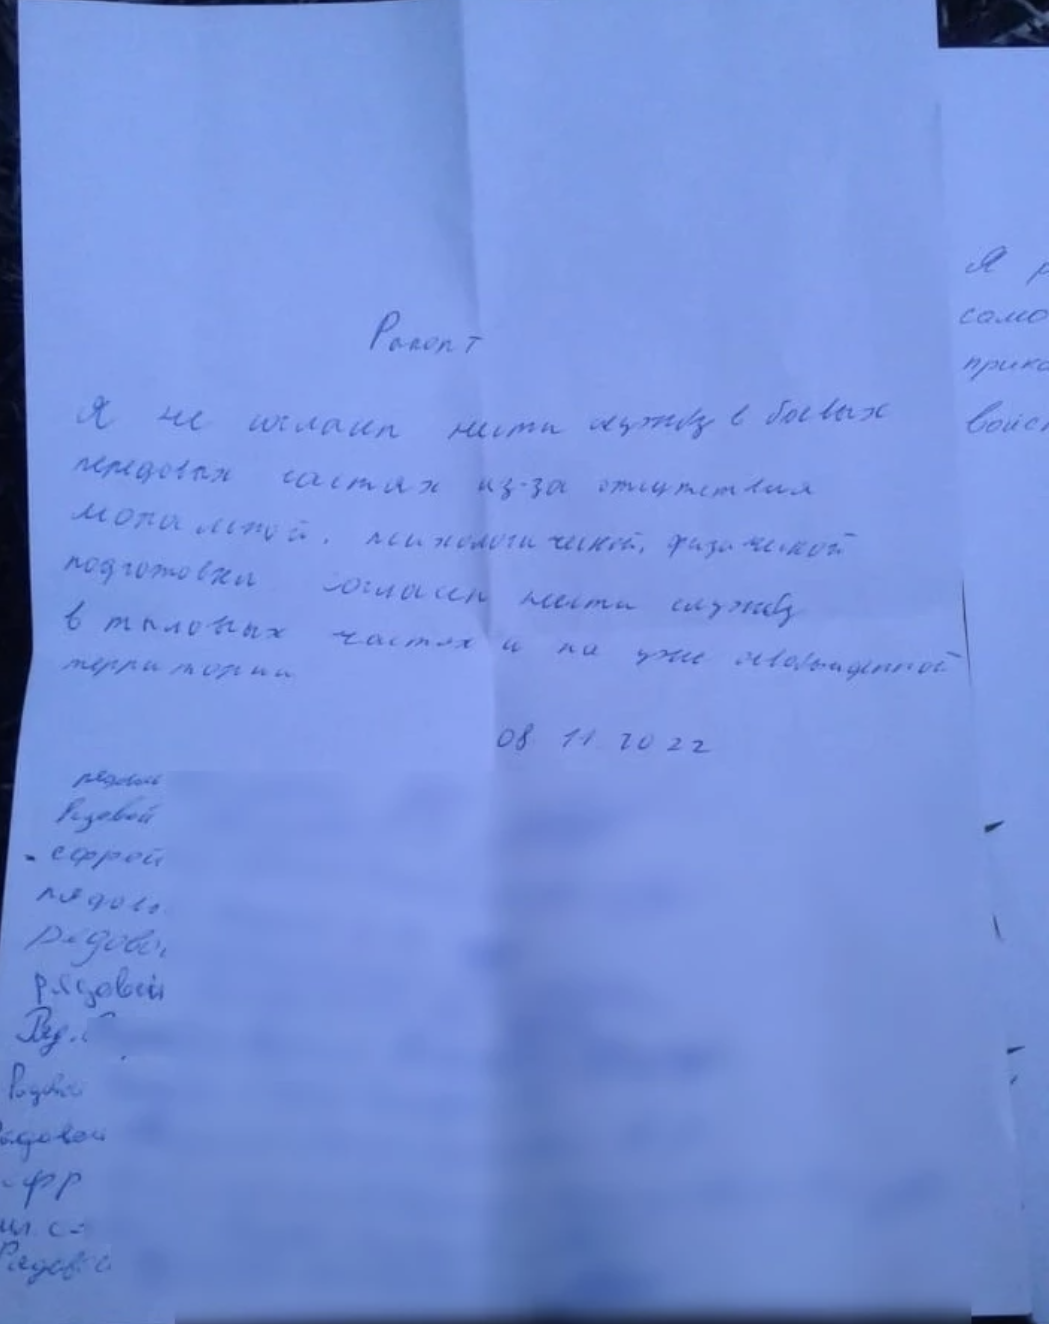 Рапорт
Я не согласен нести службу в боевых
передовых частях из-за отсутствия
моральной, психологической, физической
подготовки согласен нести службу
в тыловых частях и на уже освобожденной
территории
08 11 2022
рядовой
Рядовой
ефрей
рядово
рядово
рядовой
Ряд.
Рядово
рядовой
ефр
мл. с-
Рядовой
Я р
само
прика
войск